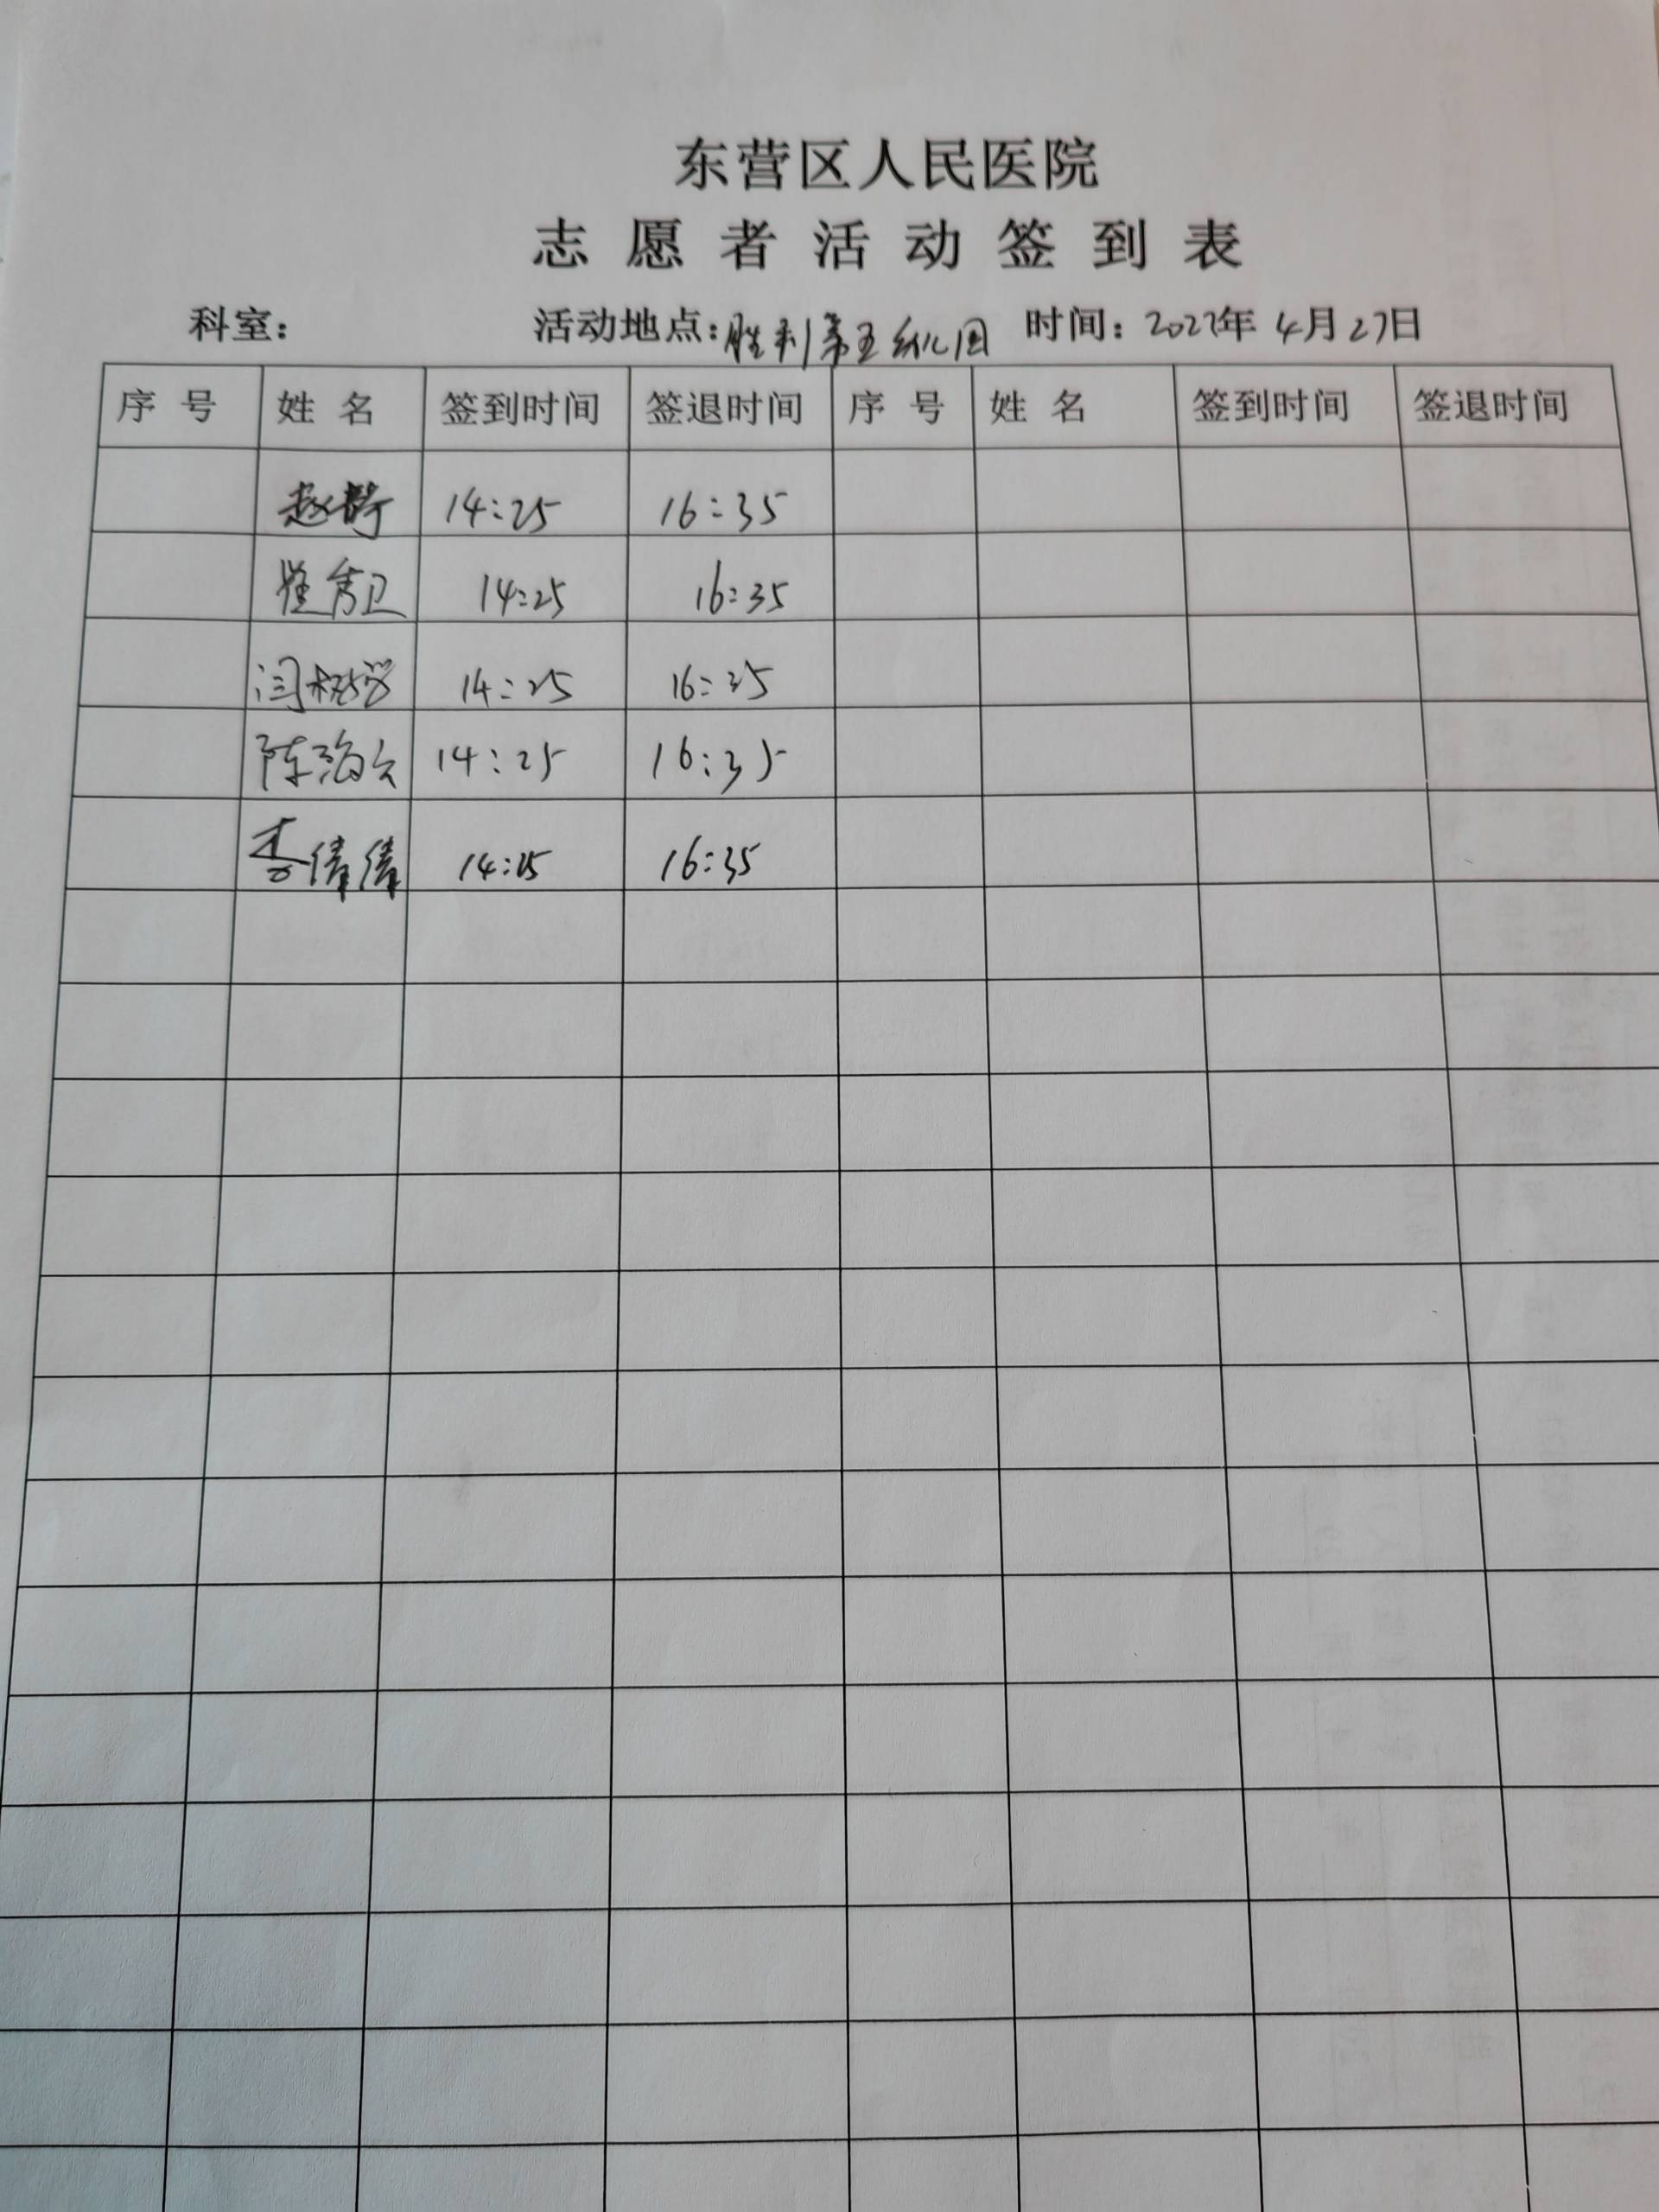 东营区人民医院
志愿者活动签到表
科室： 活动地点：胜利第五幼儿园 时间：2022年4月27日
序号 姓名 签到时间 签退时间 序号 姓名 签到时间 签退时间
赵 14:25 16:35
崔秀卫 14:25 16:35
闫 14:25 16:35
陈 14:25 16:35
李倩倩 14:25 16:35